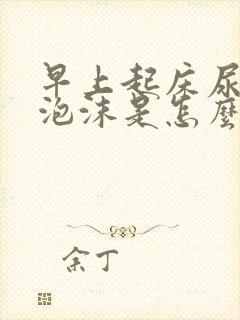 早上起床尿
泡沫是怎麼
余丁